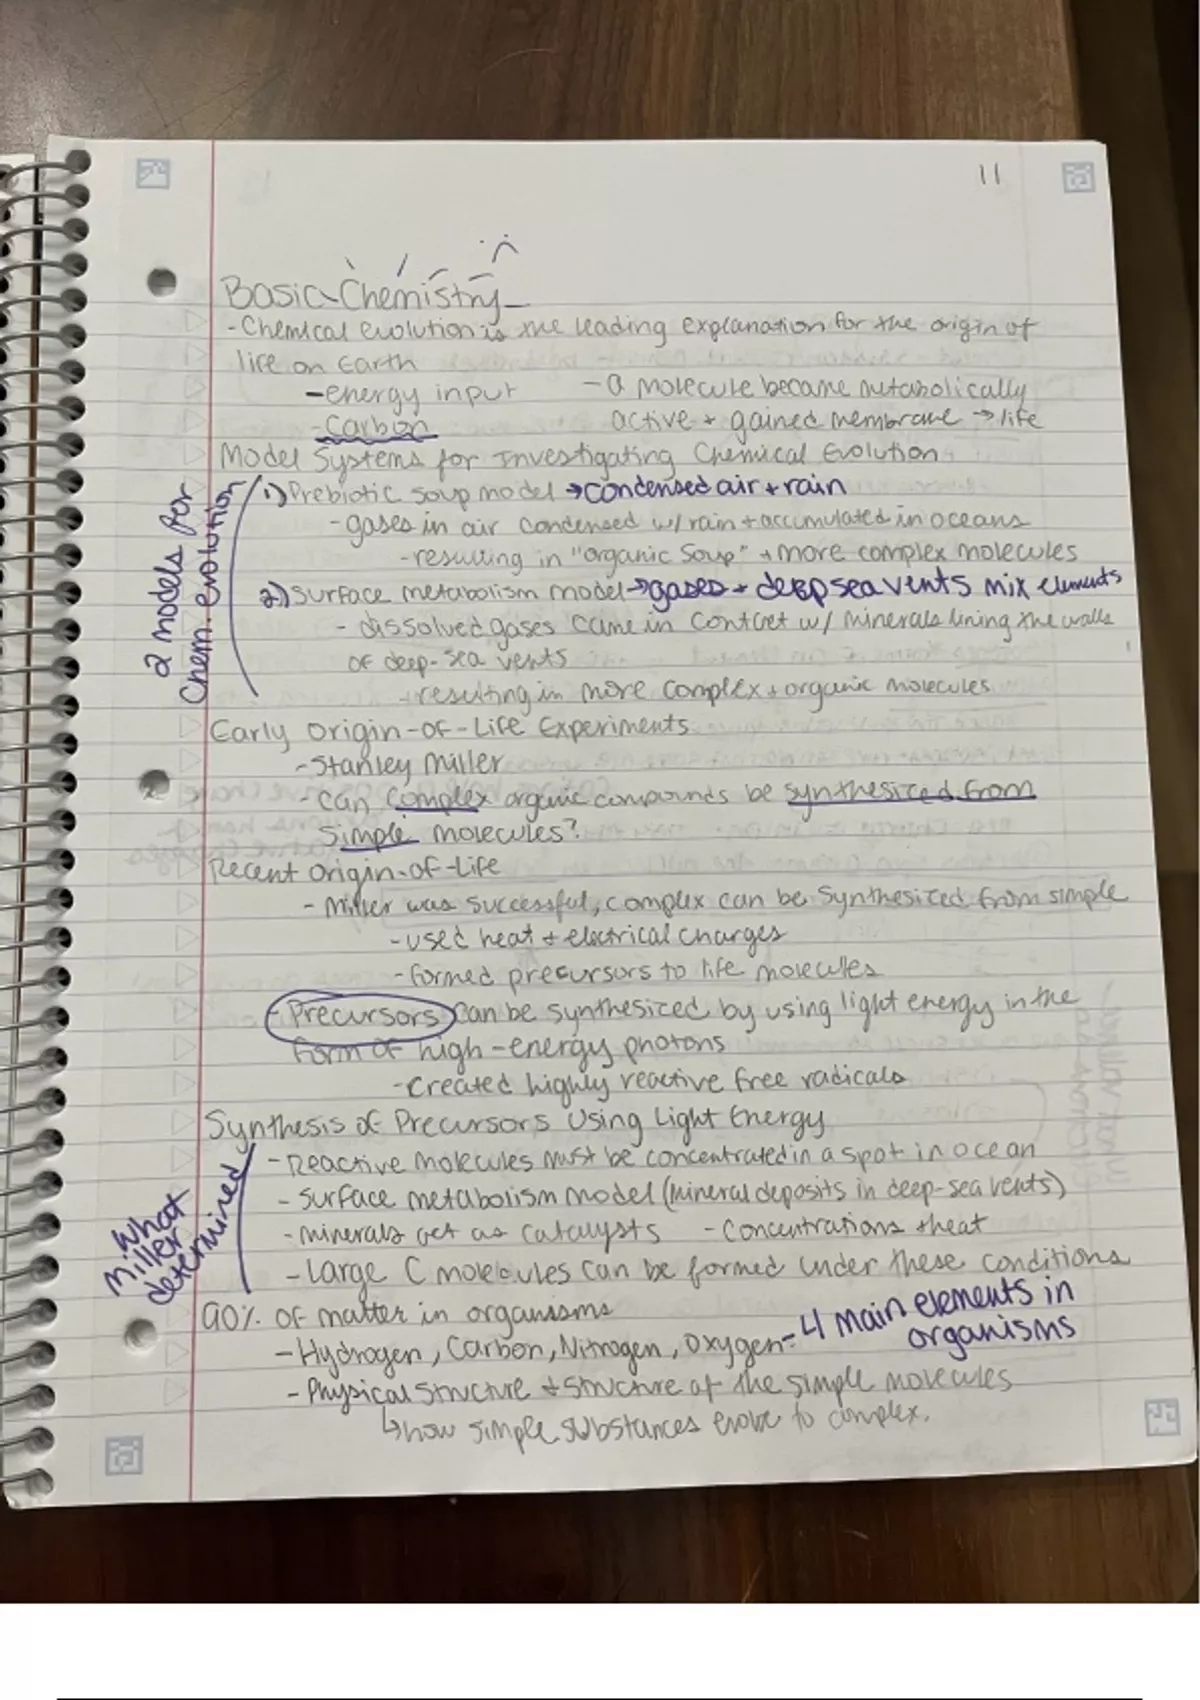 11
Basic Chemistry
- Chemical evolution is the leading explanation for the origin of
life on Earth
- energy input - a molecule became metabolically
- Carbon active + gained membrane → life
Model Systems for Investigating Chemical Evolution
2 models for
Chem. evolution
1) Prebiotic soup model → condensed air + rain
- gases in air condensed w/ rain + accumulated in oceans
- resulting in "organic soup" + more complex molecules
2) Surface metabolism model → gases + deep sea vents mix elements
- dissolved gases came in contact w/ minerals lining the walls
of deep-sea vents
- resulting in more complex + organic molecules
Early Origin-of-Life Experiments
- Stanley Miller
- can complex organic compounds be synthesized from
simple molecules?
Recent Origin-of-Life
- Miller was successful, complex can be synthesized from simple
- used heat + electrical charges
- formed precursors to life molecules
- Precursors can be synthesized by using light energy in the
form of high-energy photons
- created highly reactive free radicals
Synthesis of Precursors Using Light Energy
What
Miller
determined
- Reactive molecules must be concentrated in a spot in ocean
- Surface metabolism model (mineral deposits in deep-sea vents)
- minerals act as catalysts - concentrations + heat
- Large C molecules can be formed under these conditions
90% of matter in organisms
- Hydrogen, Carbon, Nitrogen, Oxygen - 4 main elements in
organisms
- Physical structure + structure of the simple molecules
↳ how simple substances evolve to complex.